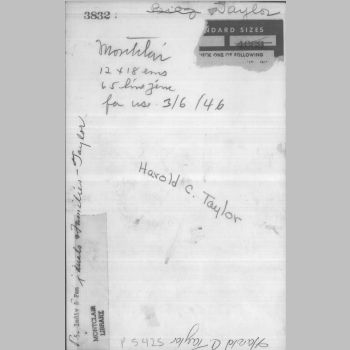 3832:
& Taylor
NDARD SIZES
ONE OF FOLLOWING
Montclair
12 x 18 ems
65 line zinc
for use 3/6/46
Harold C. Taylor
& Families - Taylor
MONTCLAIR
LIBRARY
P 5425
Harold C. Taylor